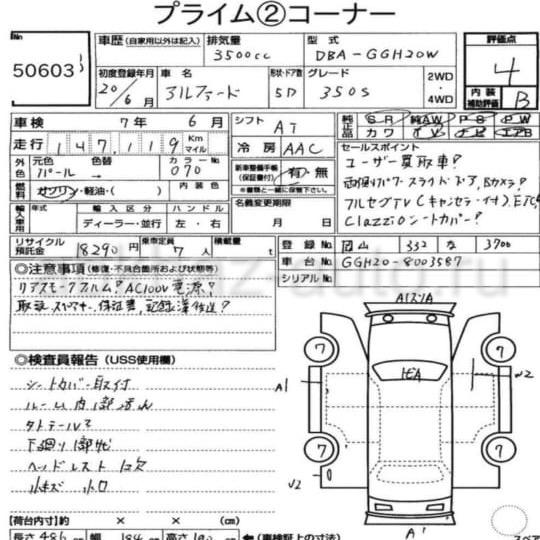 プライム②コーナー
No. 50603
車歴 (自家用以外は記入) 排気量 3500cc 型式 DBA-GGH20W 評価点 4
初度登録年月 20/6月 車名 アルファード 形状・ドア数 5D グレード 350S 2WD ・ 4WD 内装補助評価 B
車検 7年 6月 シフト AT 純正品 SR 純AW PS PW
走行 147,119 Km マイル 冷房 AAC カワ TV ナビ エアB
外色 元色 パール 色替 → カラーNo. 070 新車整備手帳(保証書付) 有・無 ※書類と一緒に保管して下さい。 セールスポイント
ユーザー買取車?
燃料 ガソリン・軽油・( ) 内装色 両側パワースライドドア,Bカメラ?
輸入車用 年式 輸入区分 ディーラー・並行 ハンドル 左・右 名義変更期限 月 日 フルセグTV(キャンセラー付),ETC
Clazzioシートカバー?
リサイクル預託金 18290円 乗車定員 7人 積載量 t 登録No. 岡山 332 な 3700
車台No. GGH20-8003587
シリアルNo.
◎注意事項 (修復・不具合箇所および状態等)
リアスモークフィルム? AC100V電源?
取説,スペアキー,保証書,記録簿後送?
◎検査員報告 (USS使用欄)
シートカバー取付
ルーム内1部汚れ
タテキズ
下廻り1部サビ
ヘッドレスト1ヶ欠
小キズ 小凹
A1スリA
1EA
7
7
7
7
A1
U2
U2
A1
スペア
【荷台内寸】約 × × (cm)
長さ 486 幅 184 高さ 190 ←(車検証上の寸法)